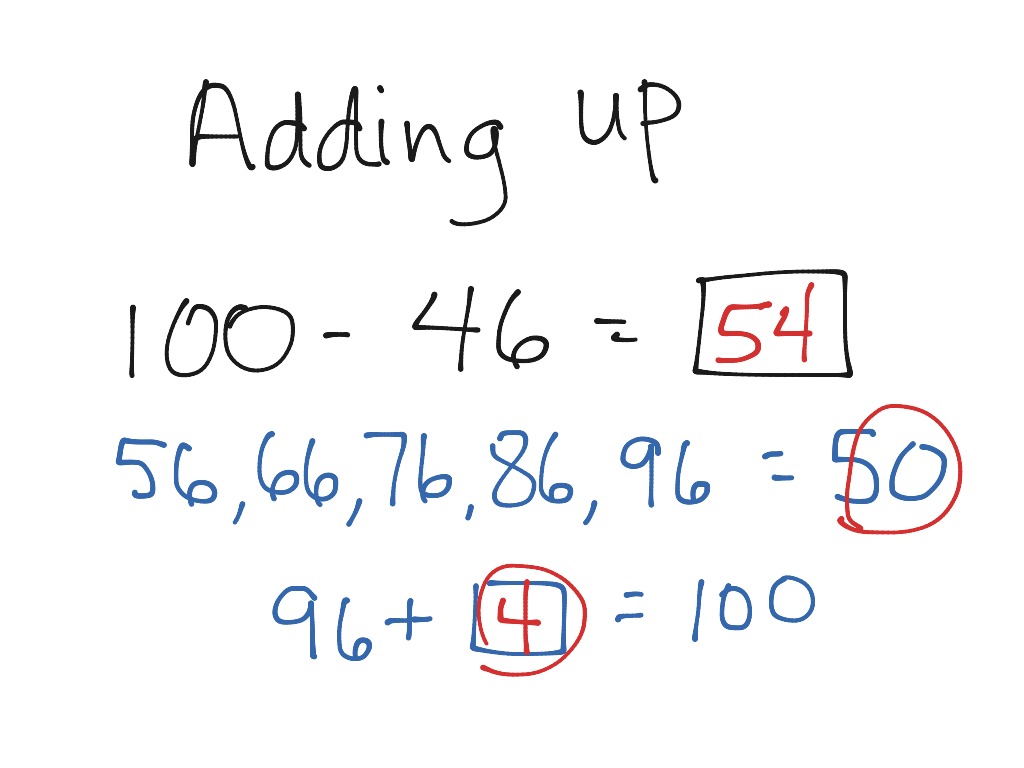 Adding up
100 - 46 = 54
56, 66, 76, 86, 96 = 50
96 + 4 = 100